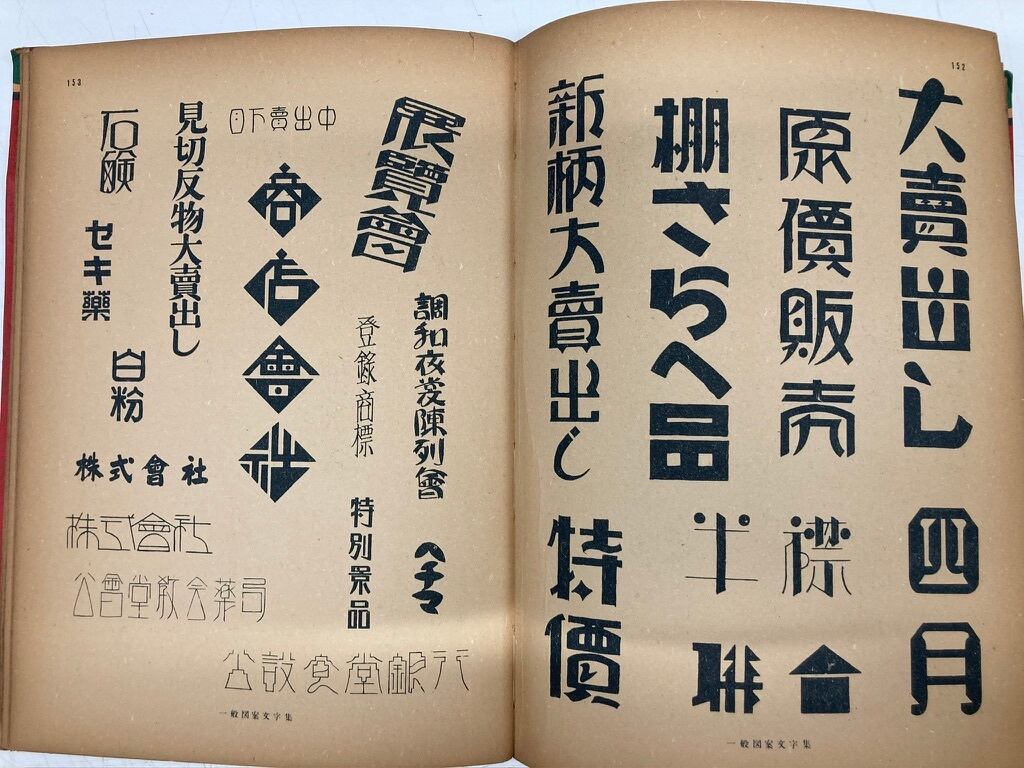 152
大賣出し
四月
原價販売
襟
棚さらへ品
半
新柄大賣出し
特價
一般図案文字集
153
展覽會
調和衣裳陳列會
ヘチマ
登錄商標
特別景品
目下賣出中
商店會社
見切反物大賣出し
石鹸
セキ藥
白粉
株式會社
株式會社
公會堂教会薬局
公設食堂銀行
一般図案文字集